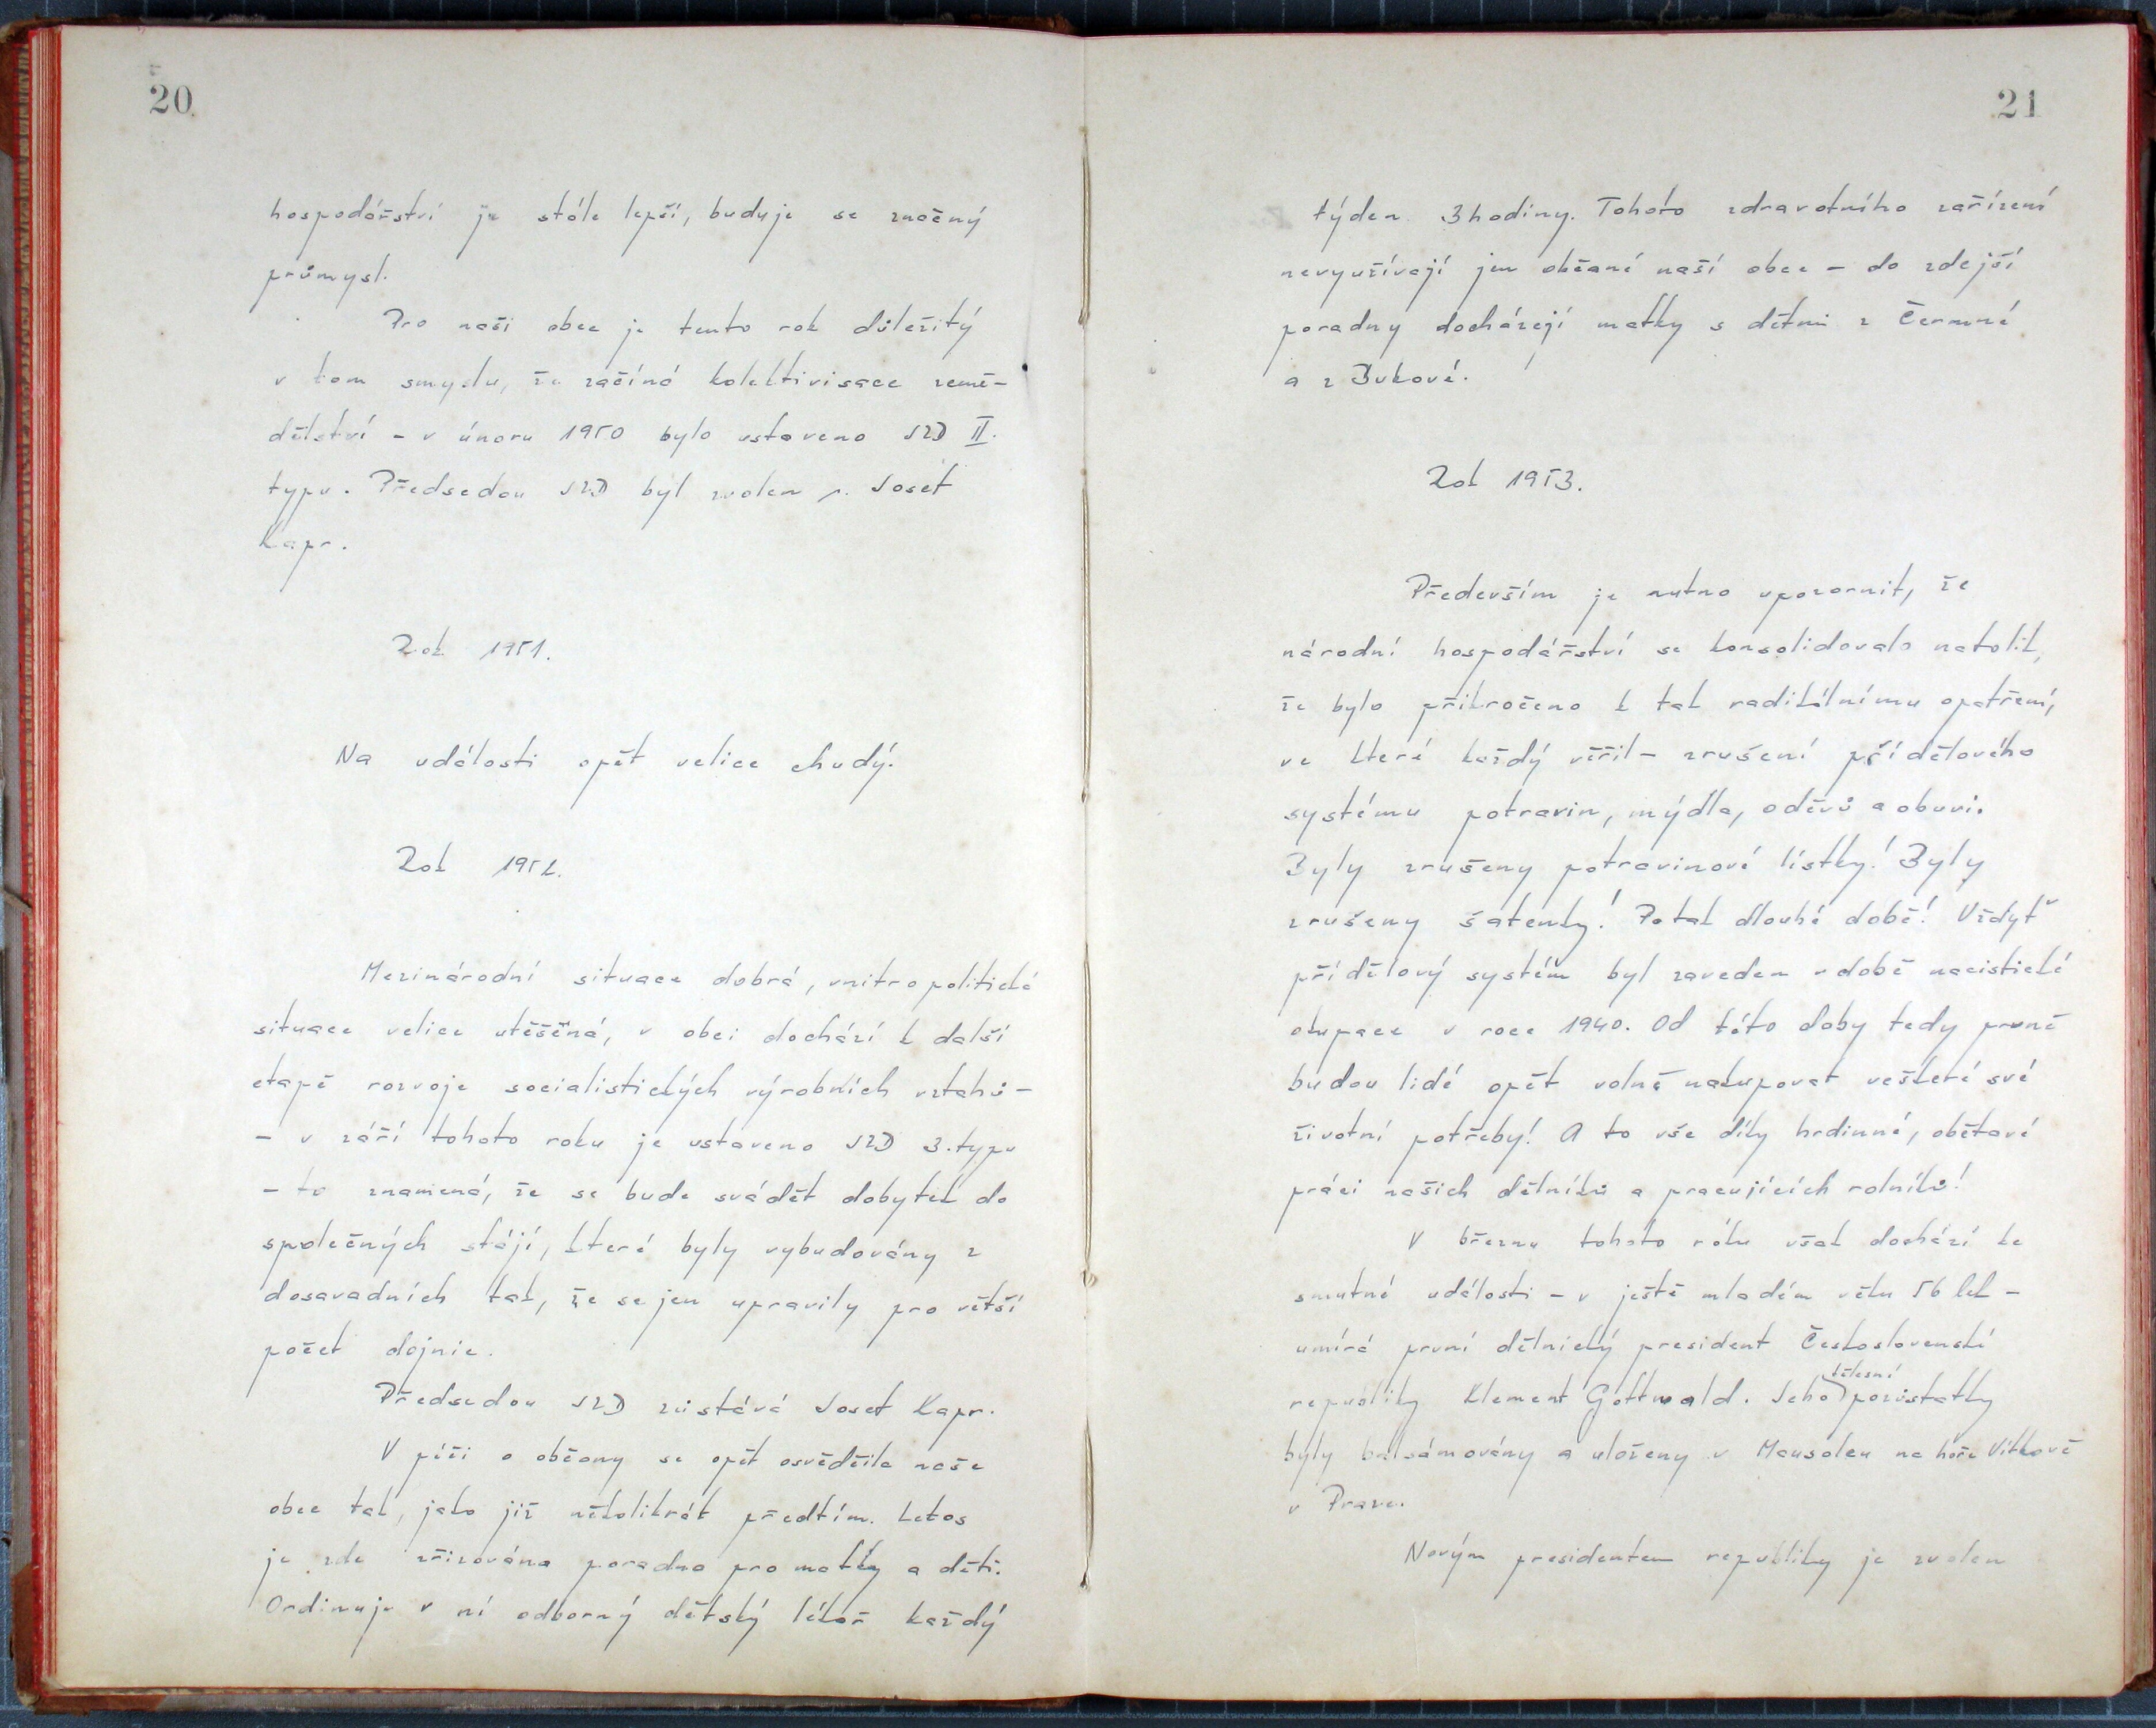 20
hospodářství je stále lepší, buduje se značný
průmysl.
Pro naši obec je tento rok důležitý
v tom smyslu, že začíná kolektivisace země-
dělství - v únoru 1950 bylo ustaveno JZD II.
typu. Předsedou JZD byl zvolen p. Josef
Kapr.
Rok 1951.
Na události opět velice chudý.
Rok 1952.
Mezinárodní situace dobrá, vnitropolitická
situace velice utěšěná, v obci dochází k další
etapě rozvoje socialistických výrobních vztahů -
- v září tohoto roku je ustaveno JZD 3. typu
- to znamená, že se bude svádět dobytek do
společných stájí, které byly vybudovány z
dosavadních tak, že se jen upravily pro větší
počet dojnic.
Předsedou JZD zůstává Josef Kapr.
V péči o občany se opět osvědčila naše
obec tak, jako již několikrát předtím. Letos
je zde zřizována poradna pro matky a děti.
Ordinuje v ní odborný dětský lékař každý
21
týden 3 hodiny. Tohoto zdravotního zařízení
nevyužívají jen občané naší obce - do zdejší
poradny docházejí matky s dětmi z Čermné
a z Bukové.
Rok 1953.
Především je nutno upozornit, že
národní hospodářství se konsolidovalo natolik,
že bylo přikročeno k tak radikálnímu opatření,
ve které každý věřil - zrušení přídělového
systému potravin, mýdla, oděvů a obuvi.
Byly zrušeny potravinové lístky! Byly
zrušeny šatenky! Po tak dlouhé době! Vždyť
přídělový systém byl zaveden v době nacistické
okupace v roce 1940. Od této doby tedy prvně
budou lidé opět volně nakupovat veškeré své
životní potřeby! A to vše díky hrdinné, obětavé
práci našich dělníků a pracujících rolníků!
V březnu tohoto roku však dochází ke
smutné události - v ještě mladém věku 56 let -
umírá první dělnický president Československé
republiky Klement Gottwald. Jeho tělesné pozůstatky
byly balsámovány a uloženy v Mausoleu na hoře Vítkově
v Praze.
Novým presidentem republiky je zvolen